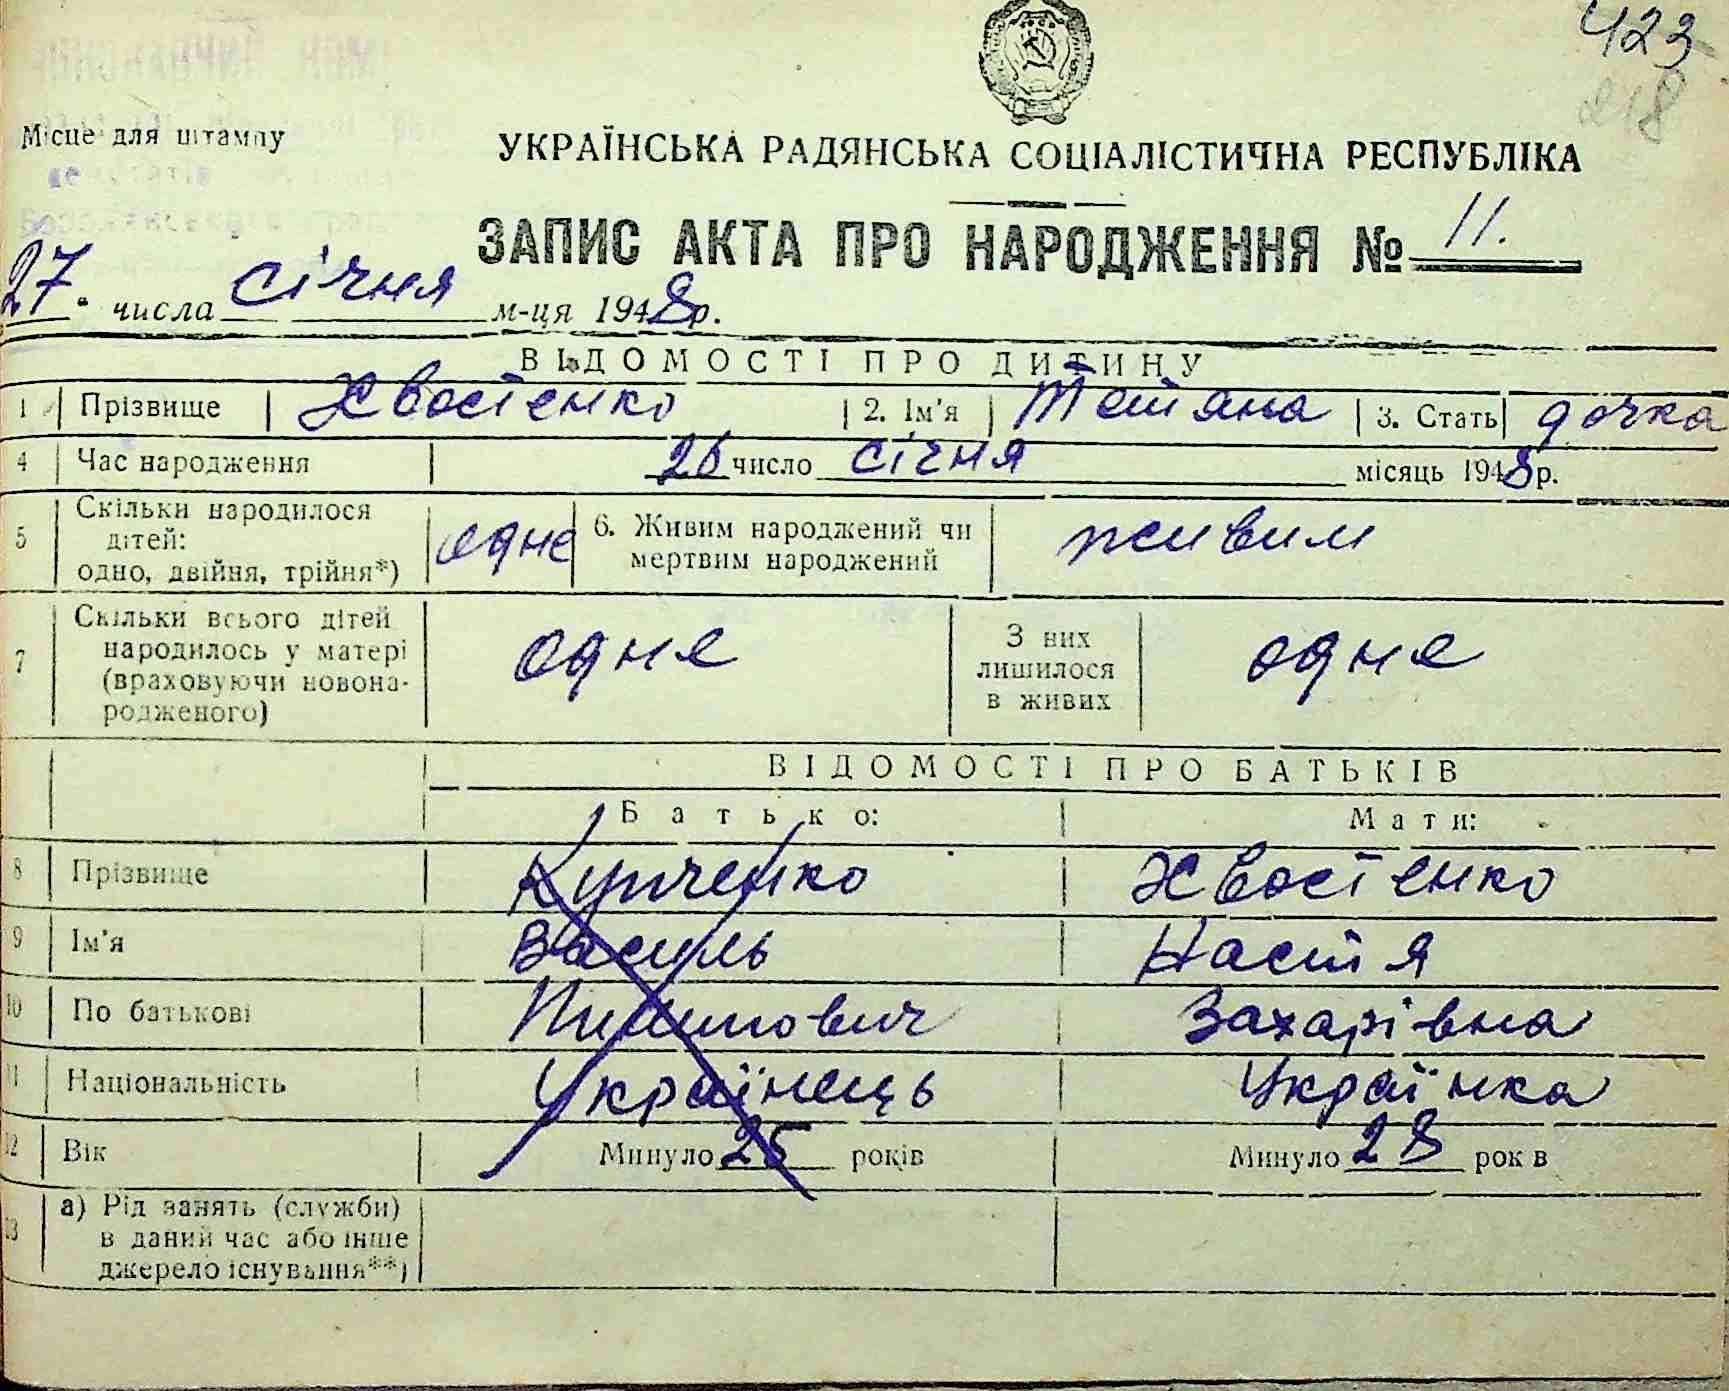 423
218
Місце для штампу
УКРАЇНСЬКА РАДЯНСЬКА СОЦІАЛІСТИЧНА РЕСПУБЛІКА
ЗАПИС АКТА ПРО НАРОДЖЕННЯ № 11.
27 числа січня м-ця 1948 р.
ВІДОМОСТІ ПРО ДИТИНУ
1 Прізвище Хвостенко 2. Ім'я Тетяна 3. Стать дочка
4 Час народження 26 число січня місяць 1948 р.
5 Скільки народилося дітей: одно, двійня, трійня*) одне 6. Живим народжений чи мертвим народжений живим
7 Скільки всього дітей народилось у матері (враховуючи новона-родженого) одне З них лишилося в живих одне
ВІДОМОСТІ ПРО БАТЬКІВ
Батько: Мати:
8 Прізвище Купченко Хвостенко
9 Ім'я Василь Настя
10 По батькові Пилипович Захарівна
11 Національність Українець Українка
12 Вік Минуло 25 років Минуло 28 рок в
13 а) Рід занять (служби) в даний час або інше джерело існування**)